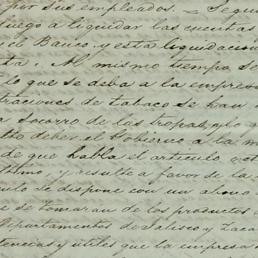 por sus empleados. = Segun
luego a liquidar las cuentas
el Banco, y esta liquidacion
ta. Al mismo tiempo se
lo que se deba a la empresa
traciones de Tabaco se han
socorro de las tropas, y lo q
deber el Gobierno a la
de que habla el articulo oct
ltimo, y resulte a favor de la
culo se dispone con un abono
se tomaran de los productos
Departamentos de Jalisco y Zaca
tencias y útiles que la empresa